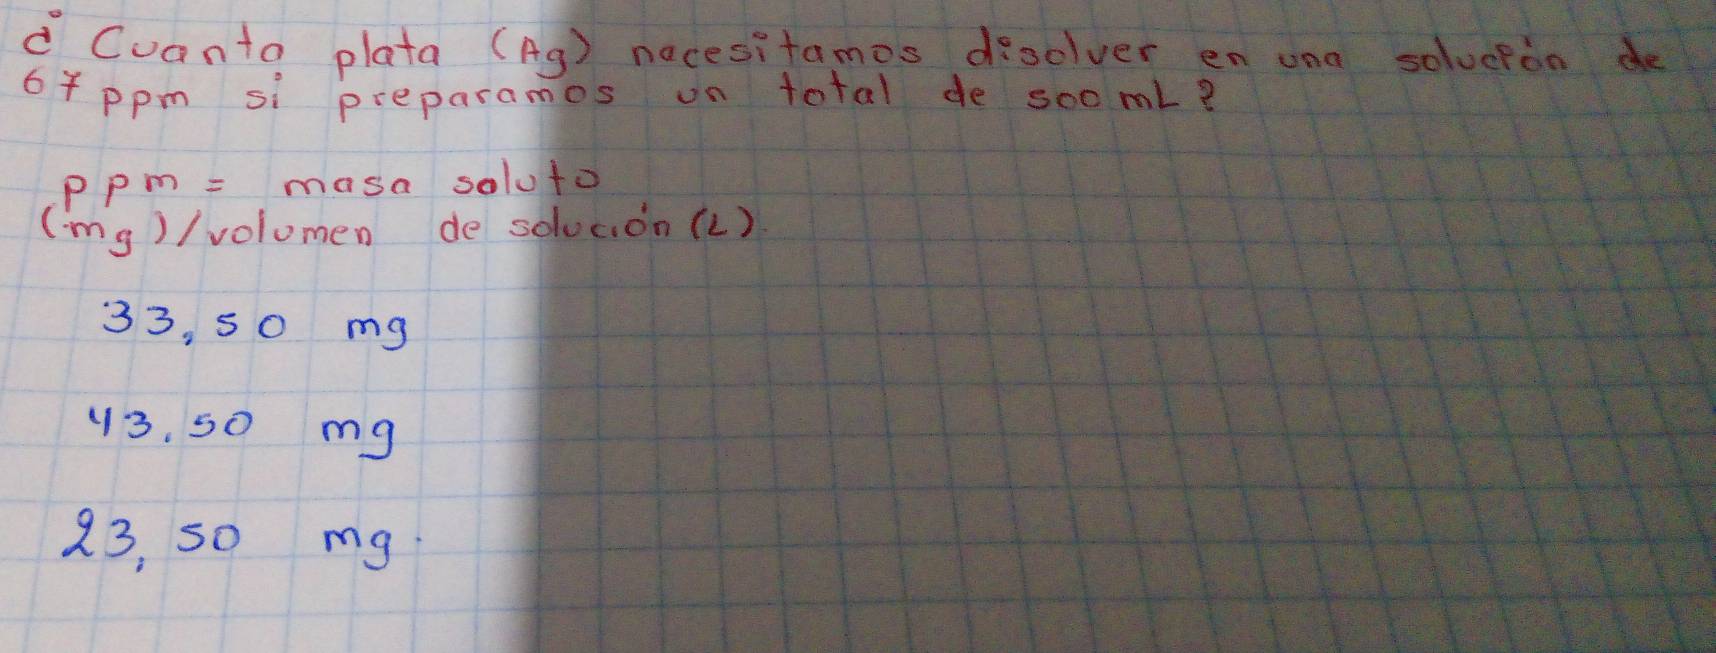 ¿ Cuanta plata (Ag) nacesitamos disolver en una solución de
67 ppm si preparamos un total de 500 mL?
ppm = masa soluto
(mg)/volumen de solución (L).
33,50 mg
43.50 mg
23,50 mg.